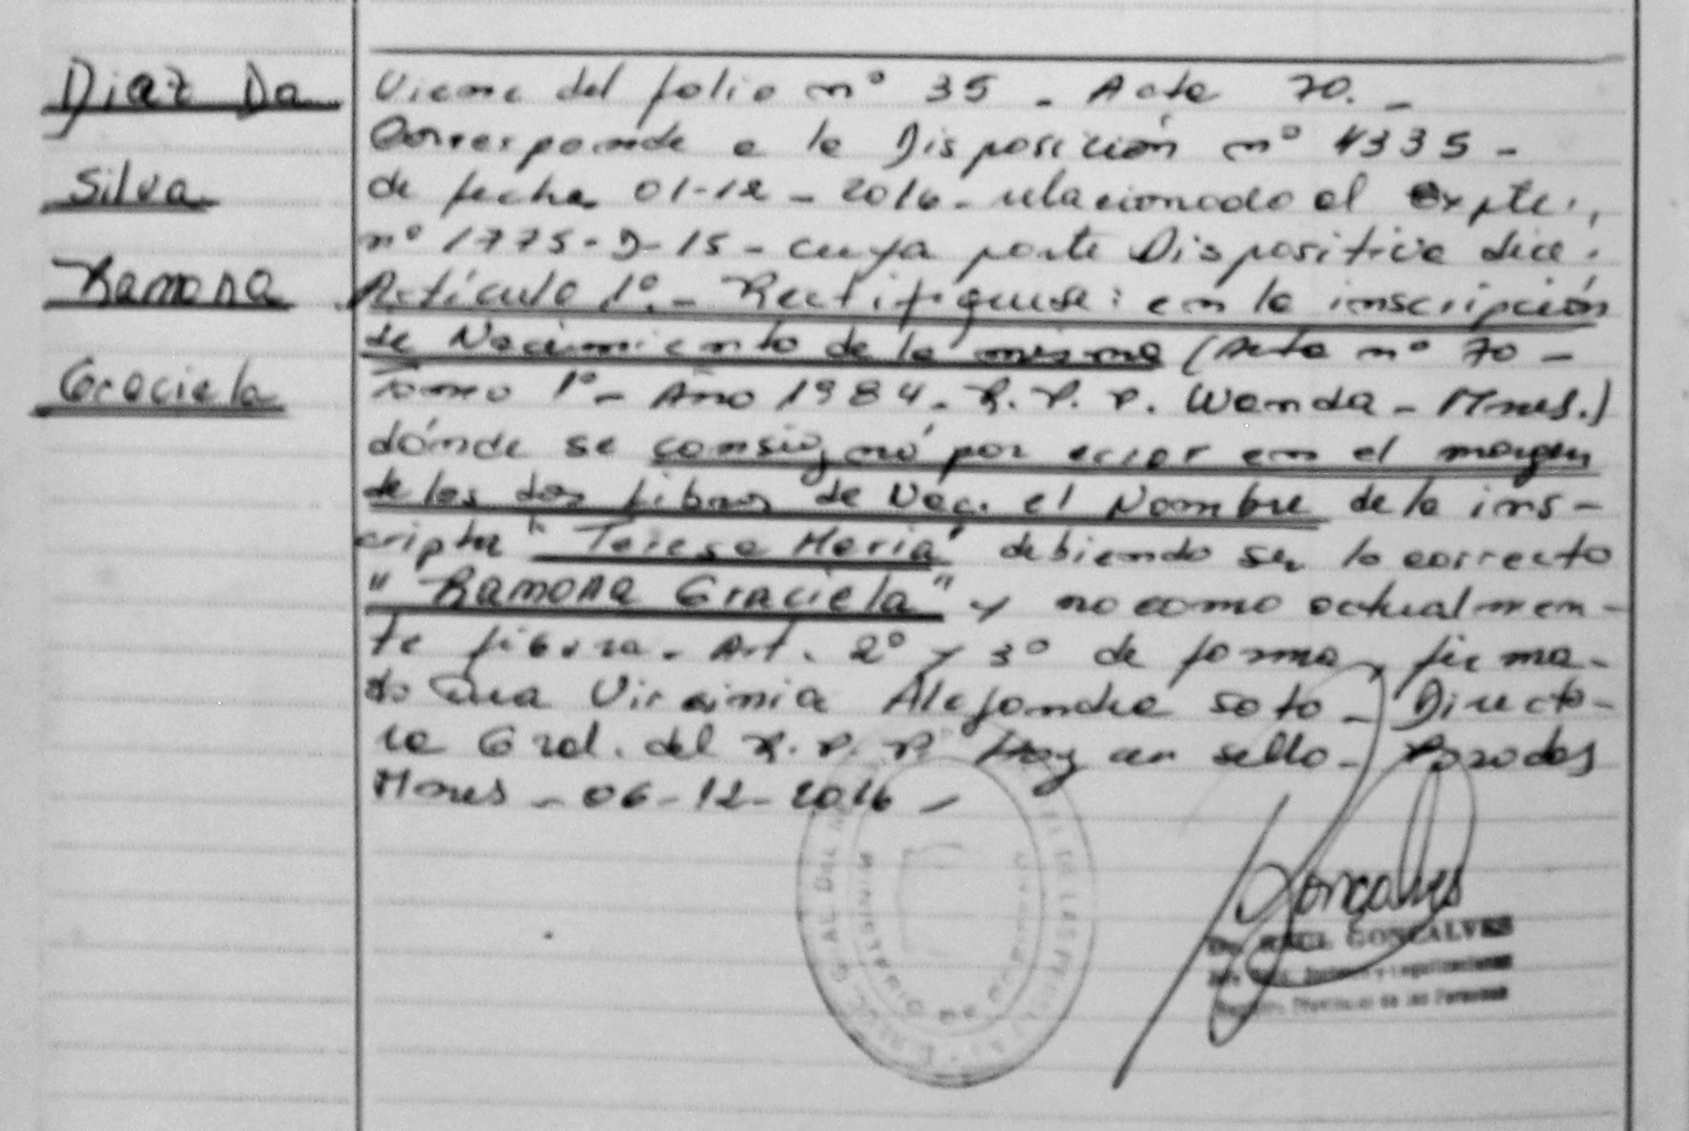 Diaz Da
Silva
Ramona
Graciela
Viene del folio nº 35 - Acta 70. -
Corresponde a la Disposición nº 4335 -
de fecha 01-12-2016- relacionado al Expte.
nº 1775-D-15- cuya parte Dispositiva dice:
Artículo 1º.- Rectifiquese: en la inscripción
de Nacimiento de la misma (Acta nº 70 -
Tomo 1º- Año 1984- R. P. P. Wanda - Mnes.)
dónde se consignó por error en el margen
de los dos Libros de Nac. el Nombre de la ins-
cripta "Teresa Maria" debiendo ser lo correcto
"Ramona Graciela" y no como actualmen-
te figura. Art. 2º y 3º de forma, firma-
do Ana Virginia Alejandra Soto - Directo-
ra Gral. del R. P. P. Hay un sello - Posadas
Mnes - 06-12-2016 -
Gonçalves
GONCALVES
y Legalizaciones
Provincial de las Personas
DE LAS PERSONAS
MINISTERIO DE GOBIERNO